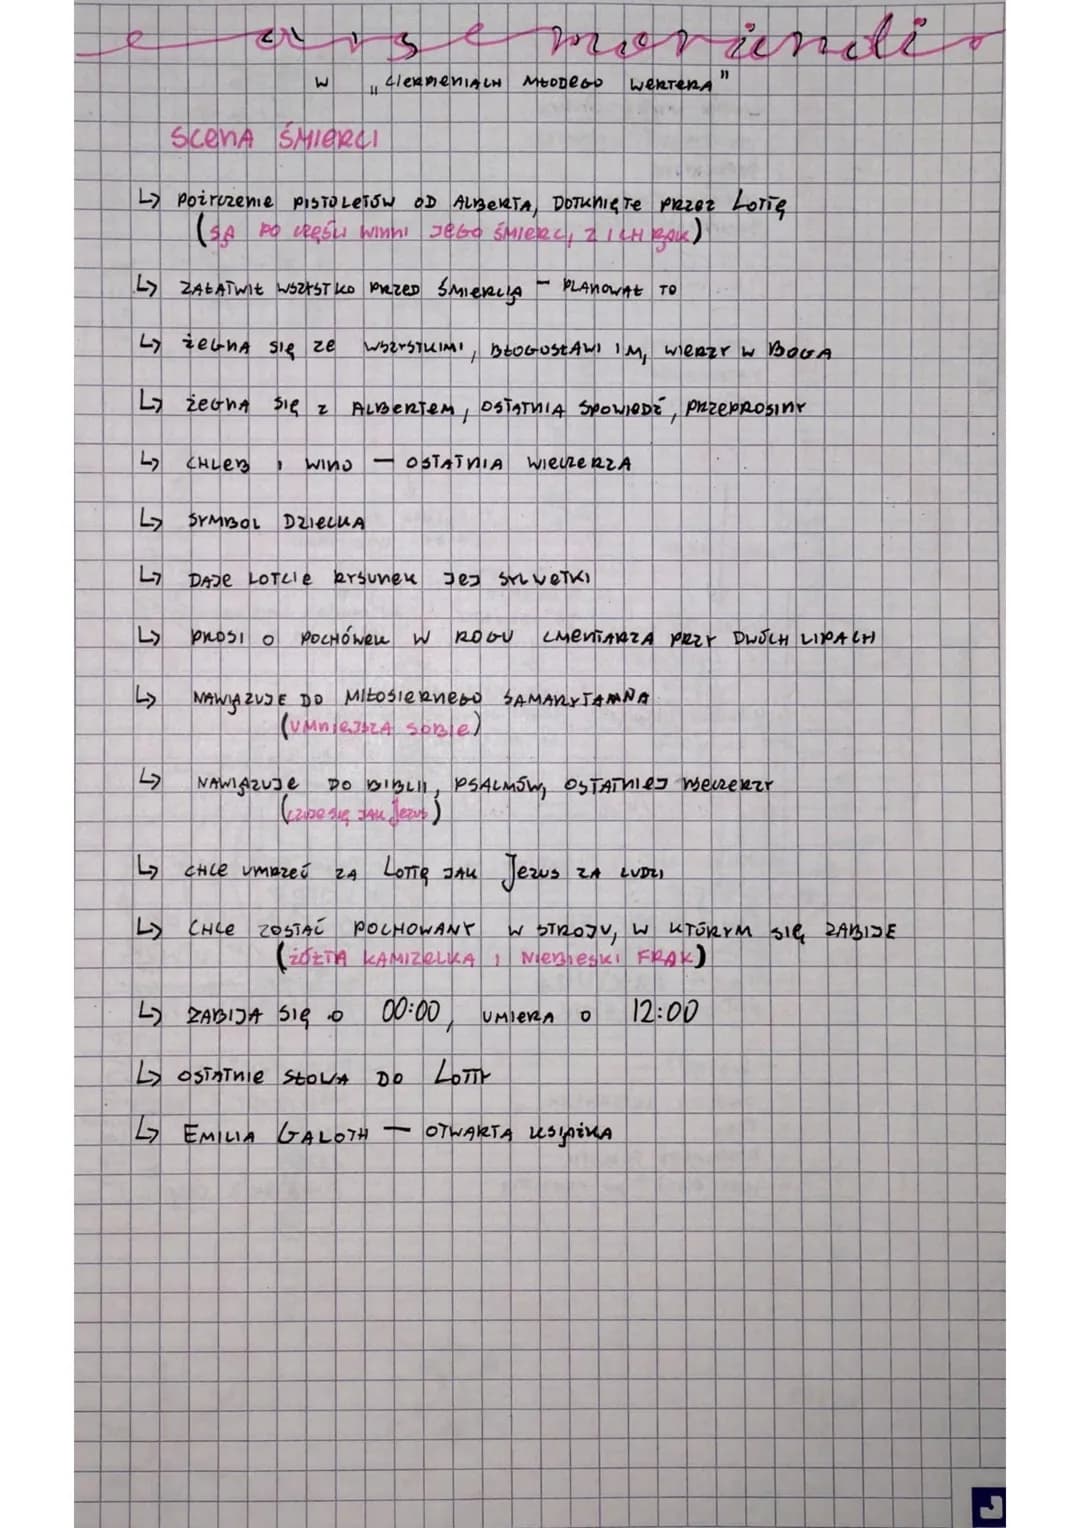 ars moriendi
W „CIERPIENIACH MŁODEGO WERTERA"
SCENA ŚMIERCI
↳ POŻYCZENIE PISTOLETÓW OD ALBERTA, DOTKNIĘTE PRZEZ LOTTĘ
(SĄ PO CZĘŚCI WINNI JEGO ŚMIERCI, Z ICH RĄK)
↳ ZAŁATWIŁ WSZYSTKO PRZED ŚMIERCIĄ - PLANOWAŁ TO
↳ ŻEGNA SIĘ ZE WSZYSTKIMI, BŁOGOSŁAWI IM, WIERZY W BOGA
↳ ŻEGNA SIĘ Z ALBERTEM, OSTATNIA SPOWIEDŹ, PRZEPROSINY
↳ CHLEB I WINO — OSTATNIA WIECZERZA
↳ SYMBOL DZIECKA
↳ DAJE LOTCIE RYSUNEK JEJ SYLWETKI
↳ PROSI O POCHÓWEK W ROGU CMENTARZA PRZY DWÓCH LIPACH
↳ NAWIĄZUJE DO MIŁOSIERNEGO SAMARYTANINA
(UMNIEJSZA SOBIE)
↳ NAWIĄZUJE DO BIBLII, PSALMÓW, OSTATNIEJ WIECZERZY
(CZUJE SIĘ JAK JEZUS)
↳ CHCE UMRZEĆ ZA LOTTĘ JAK JEZUS ZA LUDZI
↳ CHCE ZOSTAĆ POCHOWANY W STROJU, W KTÓRYM SIĘ ZABIJE
(ŻÓŁTA KAMIZELKA I NIEBIESKI FRAK)
↳ ZABIJA SIĘ O 00:00, UMIERA O 12:00
↳ OSTATNIE SŁOWA DO LOTTY
↳ EMILIA GALOTH — OTWARTA KSIĄŻKA